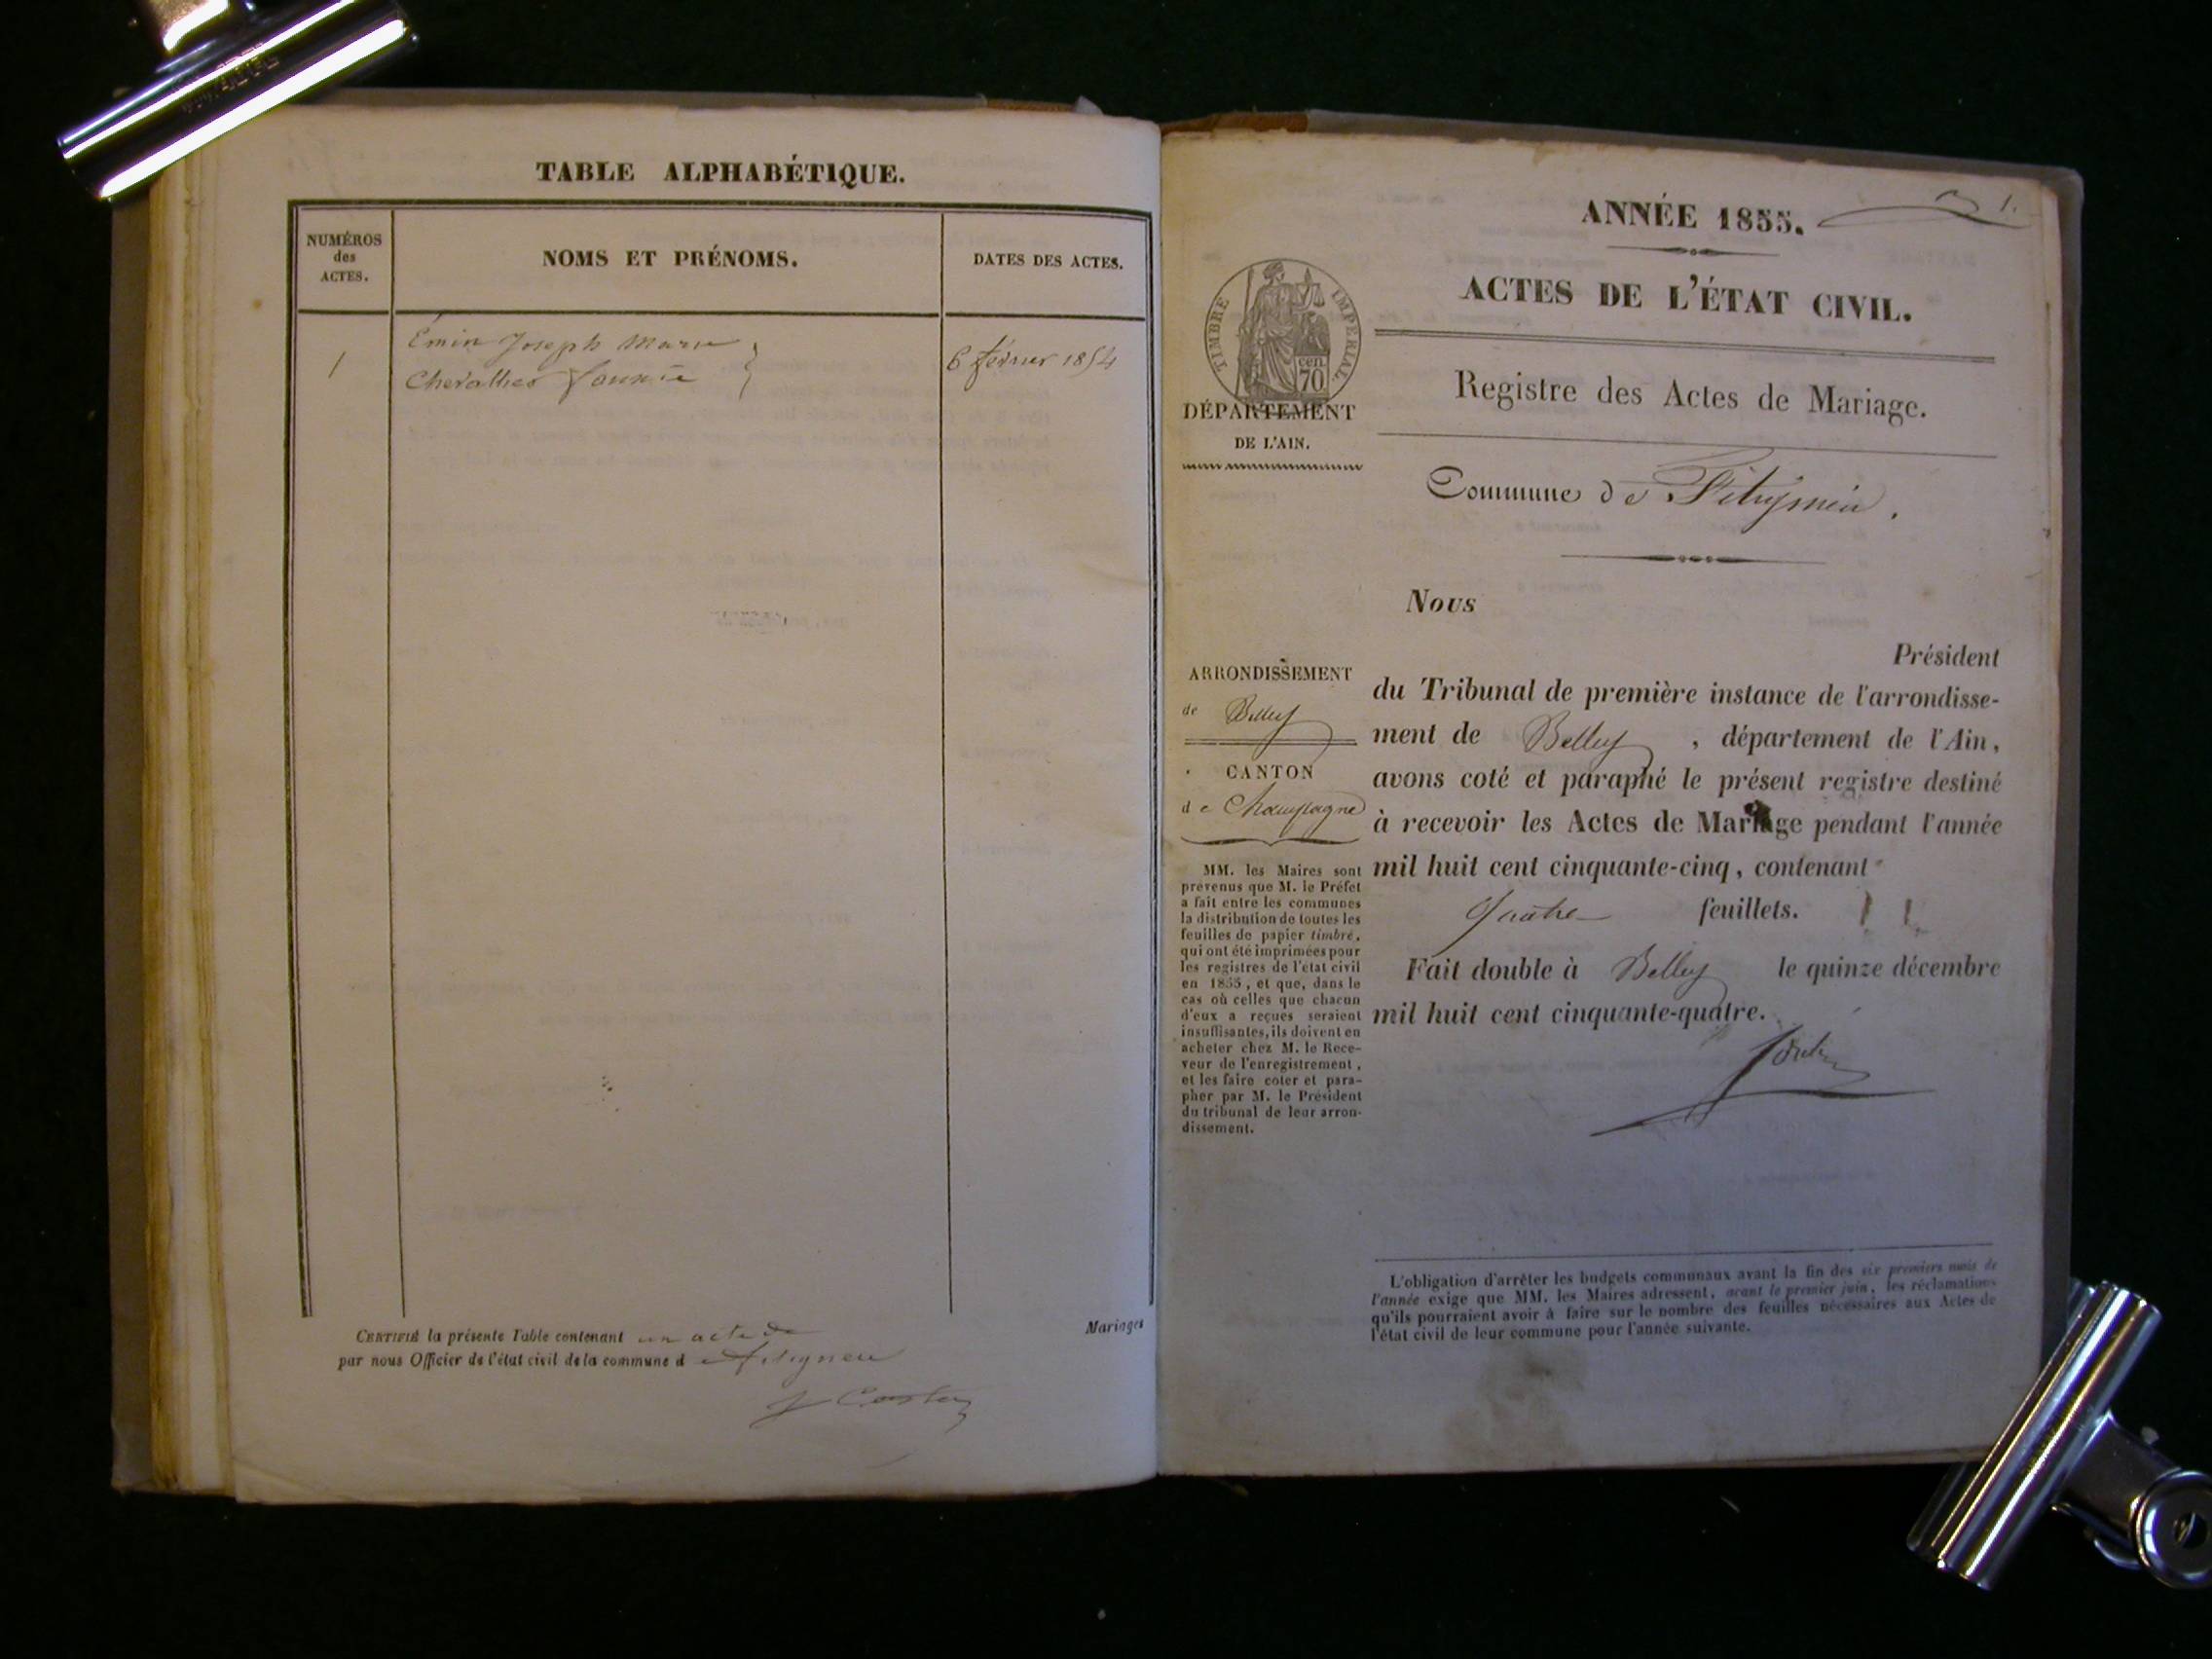 TABLE ALPHABÉTIQUE.
NUMÉROS
des
ACTES.
NOMS ET PRÉNOMS.
DATES DES ACTES.
Émin Joseph Marie
1
Chevallier
6 février 1854
CERTIFIÉ la présente Table contenant un acte de
Mariages
par nous Officier de l'état civil de la commune d
1.
ANNÉE 1855.
ACTES DE L'ÉTAT CIVIL.
TIMBRE IMPERIAL.
cen.
70
DÉPARTEMENT
DE L'AIN.
Registre des Actes de Mariage.
Commune de
Nous
Président
du Tribunal de première instance de l'arrondisse-
ment de Belley , département de l'Ain,
avons coté et paraphé le présent registre destiné
à recevoir les Actes de Mariage pendant l'année
mil huit cent cinquante-cinq, contenant
quatre feuillets.
Fait double à Belley le quinze décembre
mil huit cent cinquante-quatre.
ARRONDISSEMENT
de Belley
CANTON
de Champagne
MM. les Maires sont
prévenus que M. le Préfet
a fait entre les communes
la distribution de toutes les
feuilles de papier timbré,
qui ont été imprimées pour
les registres de l'état civil
en 1855, et que, dans le
cas où celles que chacun
d'eux a reçues seraient
insuffisantes, ils doivent en
acheter chez M. le Rece-
veur de l'enregistrement,
et les faire coter et para-
pher par M. le Président
du tribunal de leur arron-
dissement.
L'obligation d'arrêter les budgets communaux avant la fin des six premiers mois de
l'année exige que MM. les Maires adressent, avant le premier juin, les réclamations
qu'ils pourraient avoir à faire sur le nombre des feuilles nécessaires aux Actes de
l'état civil de leur commune pour l'année suivante.